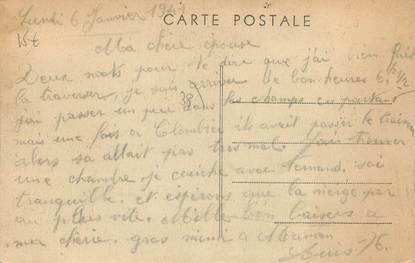 Lundi 6 Janvier 1941
CARTE POSTALE
15€
Ma chère épouse
Deux mots pour te dire que j'ai bien fais
la traverser, je suis arriver de bon heures 6 h 1/2
j'en passer un peu dans les champs en partant
mais une fois a Colombier ils avait passer le train
alors sa allait pas tres mal. J'ai trouver
une chambre je couche avec Fernand. soi
tranquille. et espérons que la neige par
au plus vite. Mille bon baisers a
ma chérie. gros mimi a Maman
Louis